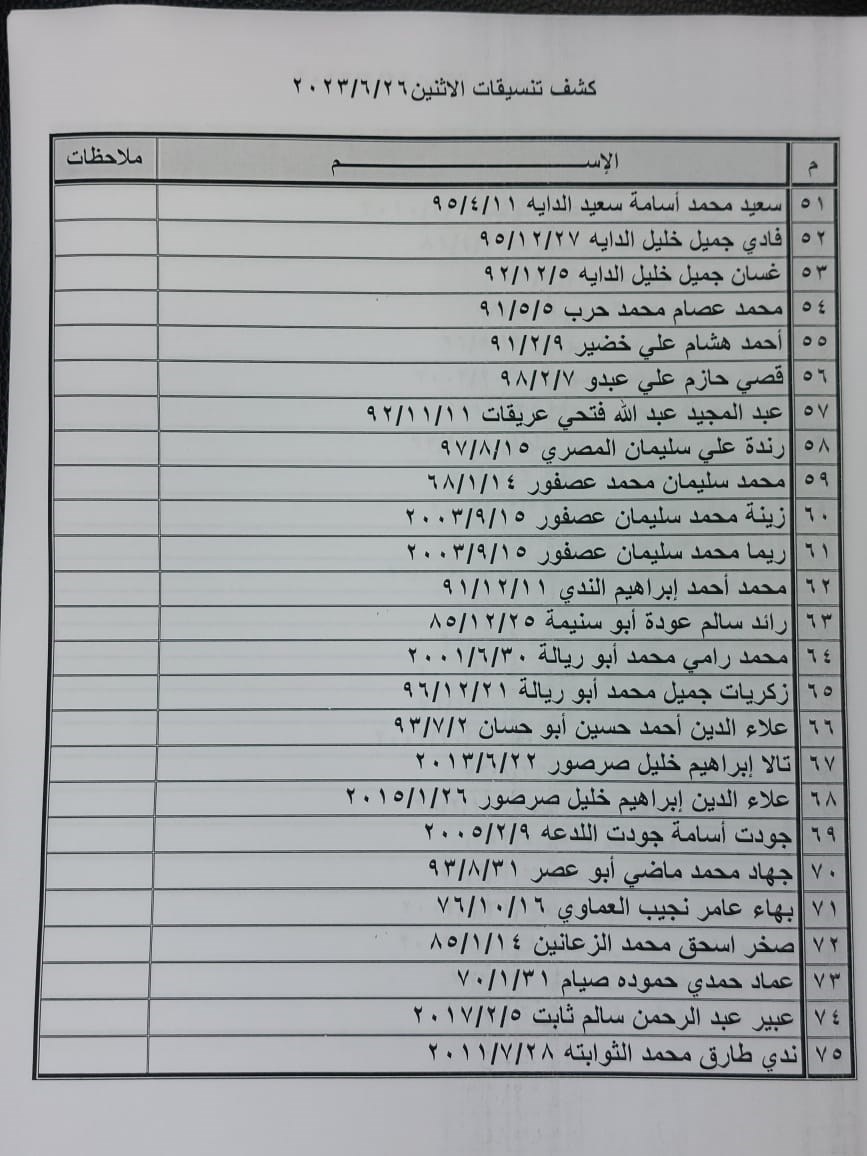 كشف تنسيقات الاثنين ٢٠٢٣/٦/٢٦
م الإســـــــــــــــــــــــم ملاحظات
٥١ سعيد محمد أسامة سعيد الدايه ٩٥/٤/١١
٥٢ فادي جميل خليل الدايه ٩٥/١٢/٢٧
٥٣ غسان جميل خليل الدايه ٩٢/١٢/٥
٥٤ محمد عصام محمد حرب ٩١/٥/٥
٥٥ أحمد هشام علي خضير ٩١/٢/٩
٥٦ قصي حازم علي عبدو ٩٨/٢/٧
٥٧ عبد المجيد عبد الله فتحي عريقات ٩٢/١١/١١
٥٨ رندة علي سليمان المصري ٩٧/٨/١٥
٥٩ محمد سليمان محمد عصفور ٦٨/١/١٤
٦٠ زينة محمد سليمان عصفور ٢٠٠٣/٩/١٥
٦١ ريما محمد سليمان عصفور ٢٠٠٣/٩/١٥
٦٢ محمد أحمد إبراهيم الندي ٩١/١٢/١١
٦٣ رائد سالم عودة أبو سنيمة ٨٥/١٢/٢٥
٦٤ محمد رامي محمد أبو ريالة ٢٠٠١/٦/٣٠
٦٥ زكريات جميل محمد أبو ريالة ٩٦/١٢/٢١
٦٦ علاء الدين أحمد حسين أبو حسان ٩٣/٧/٢
٦٧ تالا إبراهيم خليل صرصور ٢٠١٣/٦/٢٢
٦٨ علاء الدين إبراهيم خليل صرصور ٢٠١٥/١/٢٦
٦٩ جودت أسامة جودت اللدعه ٢٠٠٥/٢/٩
٧٠ جهاد محمد ماضي أبو عصر ٩٣/٨/٣١
٧١ بهاء عامر نجيب العماوي ٧٦/١٠/١٦
٧٢ صخر اسحق محمد الزعانين ٨٥/١/١٤
٧٣ عماد حمدي حموده صيام ٧٠/١/٣١
٧٤ عبير عبد الرحمن سالم ثابت ٢٠١٧/٢/٥
٧٥ ندي طارق محمد الثوابته ٢٠١١/٧/٢٨